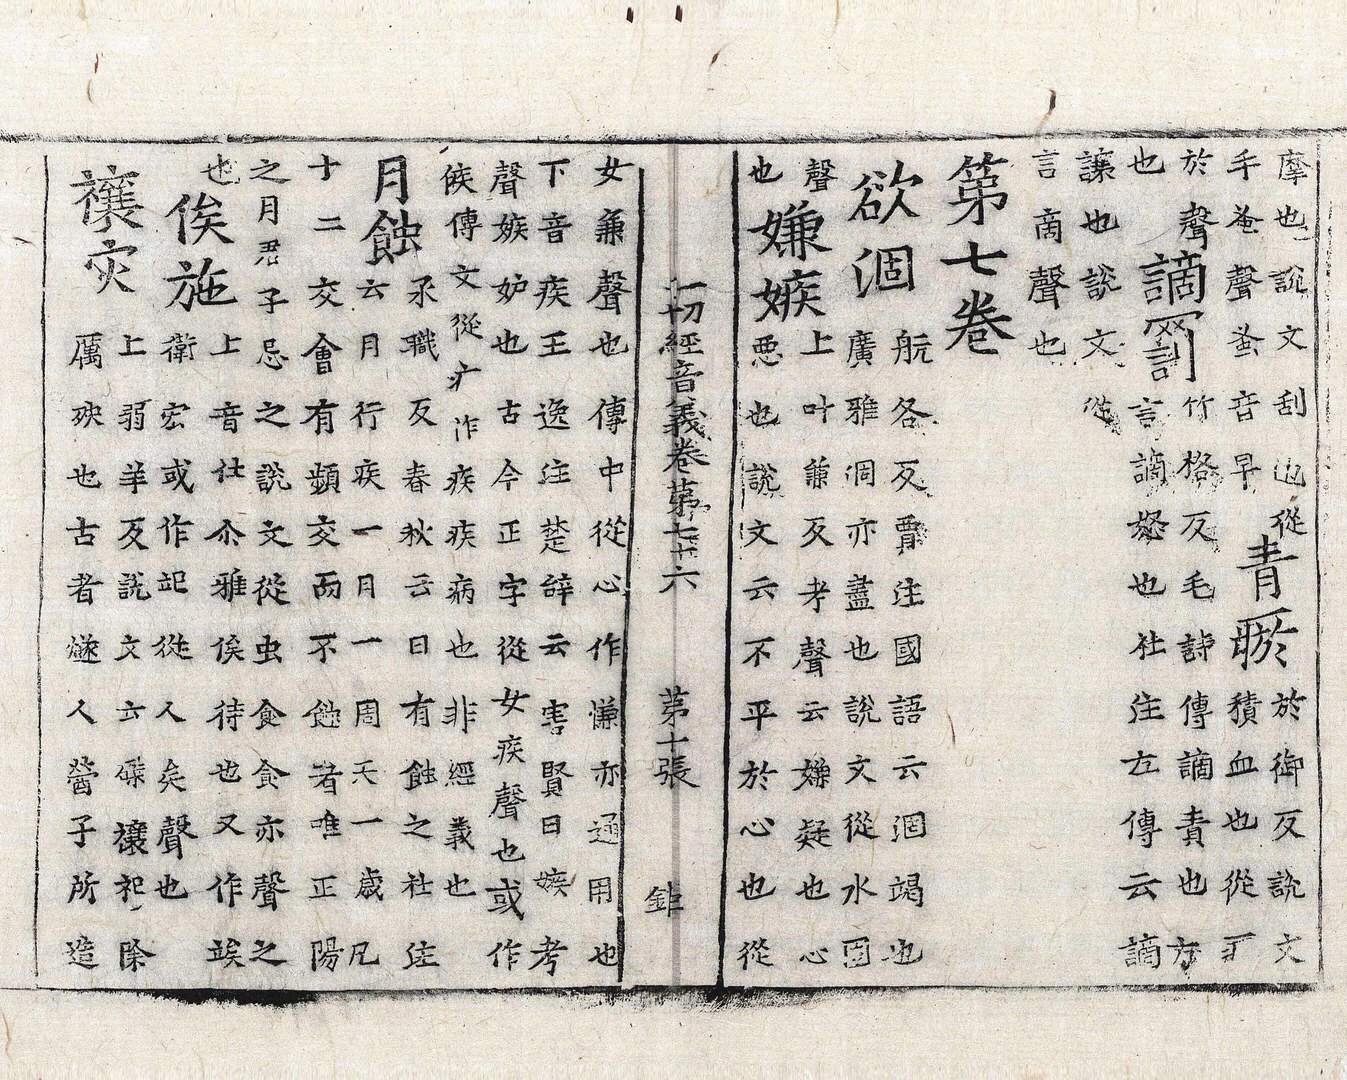 摩也說文刮也從
手蚤聲蚤音早
青瘀
於御反說文
積血也從疒
於聲
謫罰
竹格反毛詩傳謫責也方
也
言謫怒也杜注左傳云謫
讓也說文從
言啇聲也
第七卷
欲涸
航各反賈注國語云涸竭也
廣雅涸亦盡也說文從水固
聲
也
嫌嫉
上叶兼反考聲云嫌疑也心
惡也說文云不平於心也從
一切經音義卷第七十六 第十張 鉅
女兼聲也傳中從心作慊亦通用也
下音疾王逸注楚辞云害賢曰嫉考
聲嫉妒也古今正字從女疾聲也或作
傳文從疒作疾疾病也非經義也
月蝕
承職反春秋云日有蝕之杜注
云月行疾一月一周天一歲凡
十二交會有頻交而不蝕者唯正陽
之月君子忌之說文從虫食食亦聲之
也
俟施
上音仕尒雅俟待也又作竢
衛宏或作䇃從人矣聲也
禳灾
上弱羊反說文云磔禳祀除
厲殃也古者燧人禜子所造